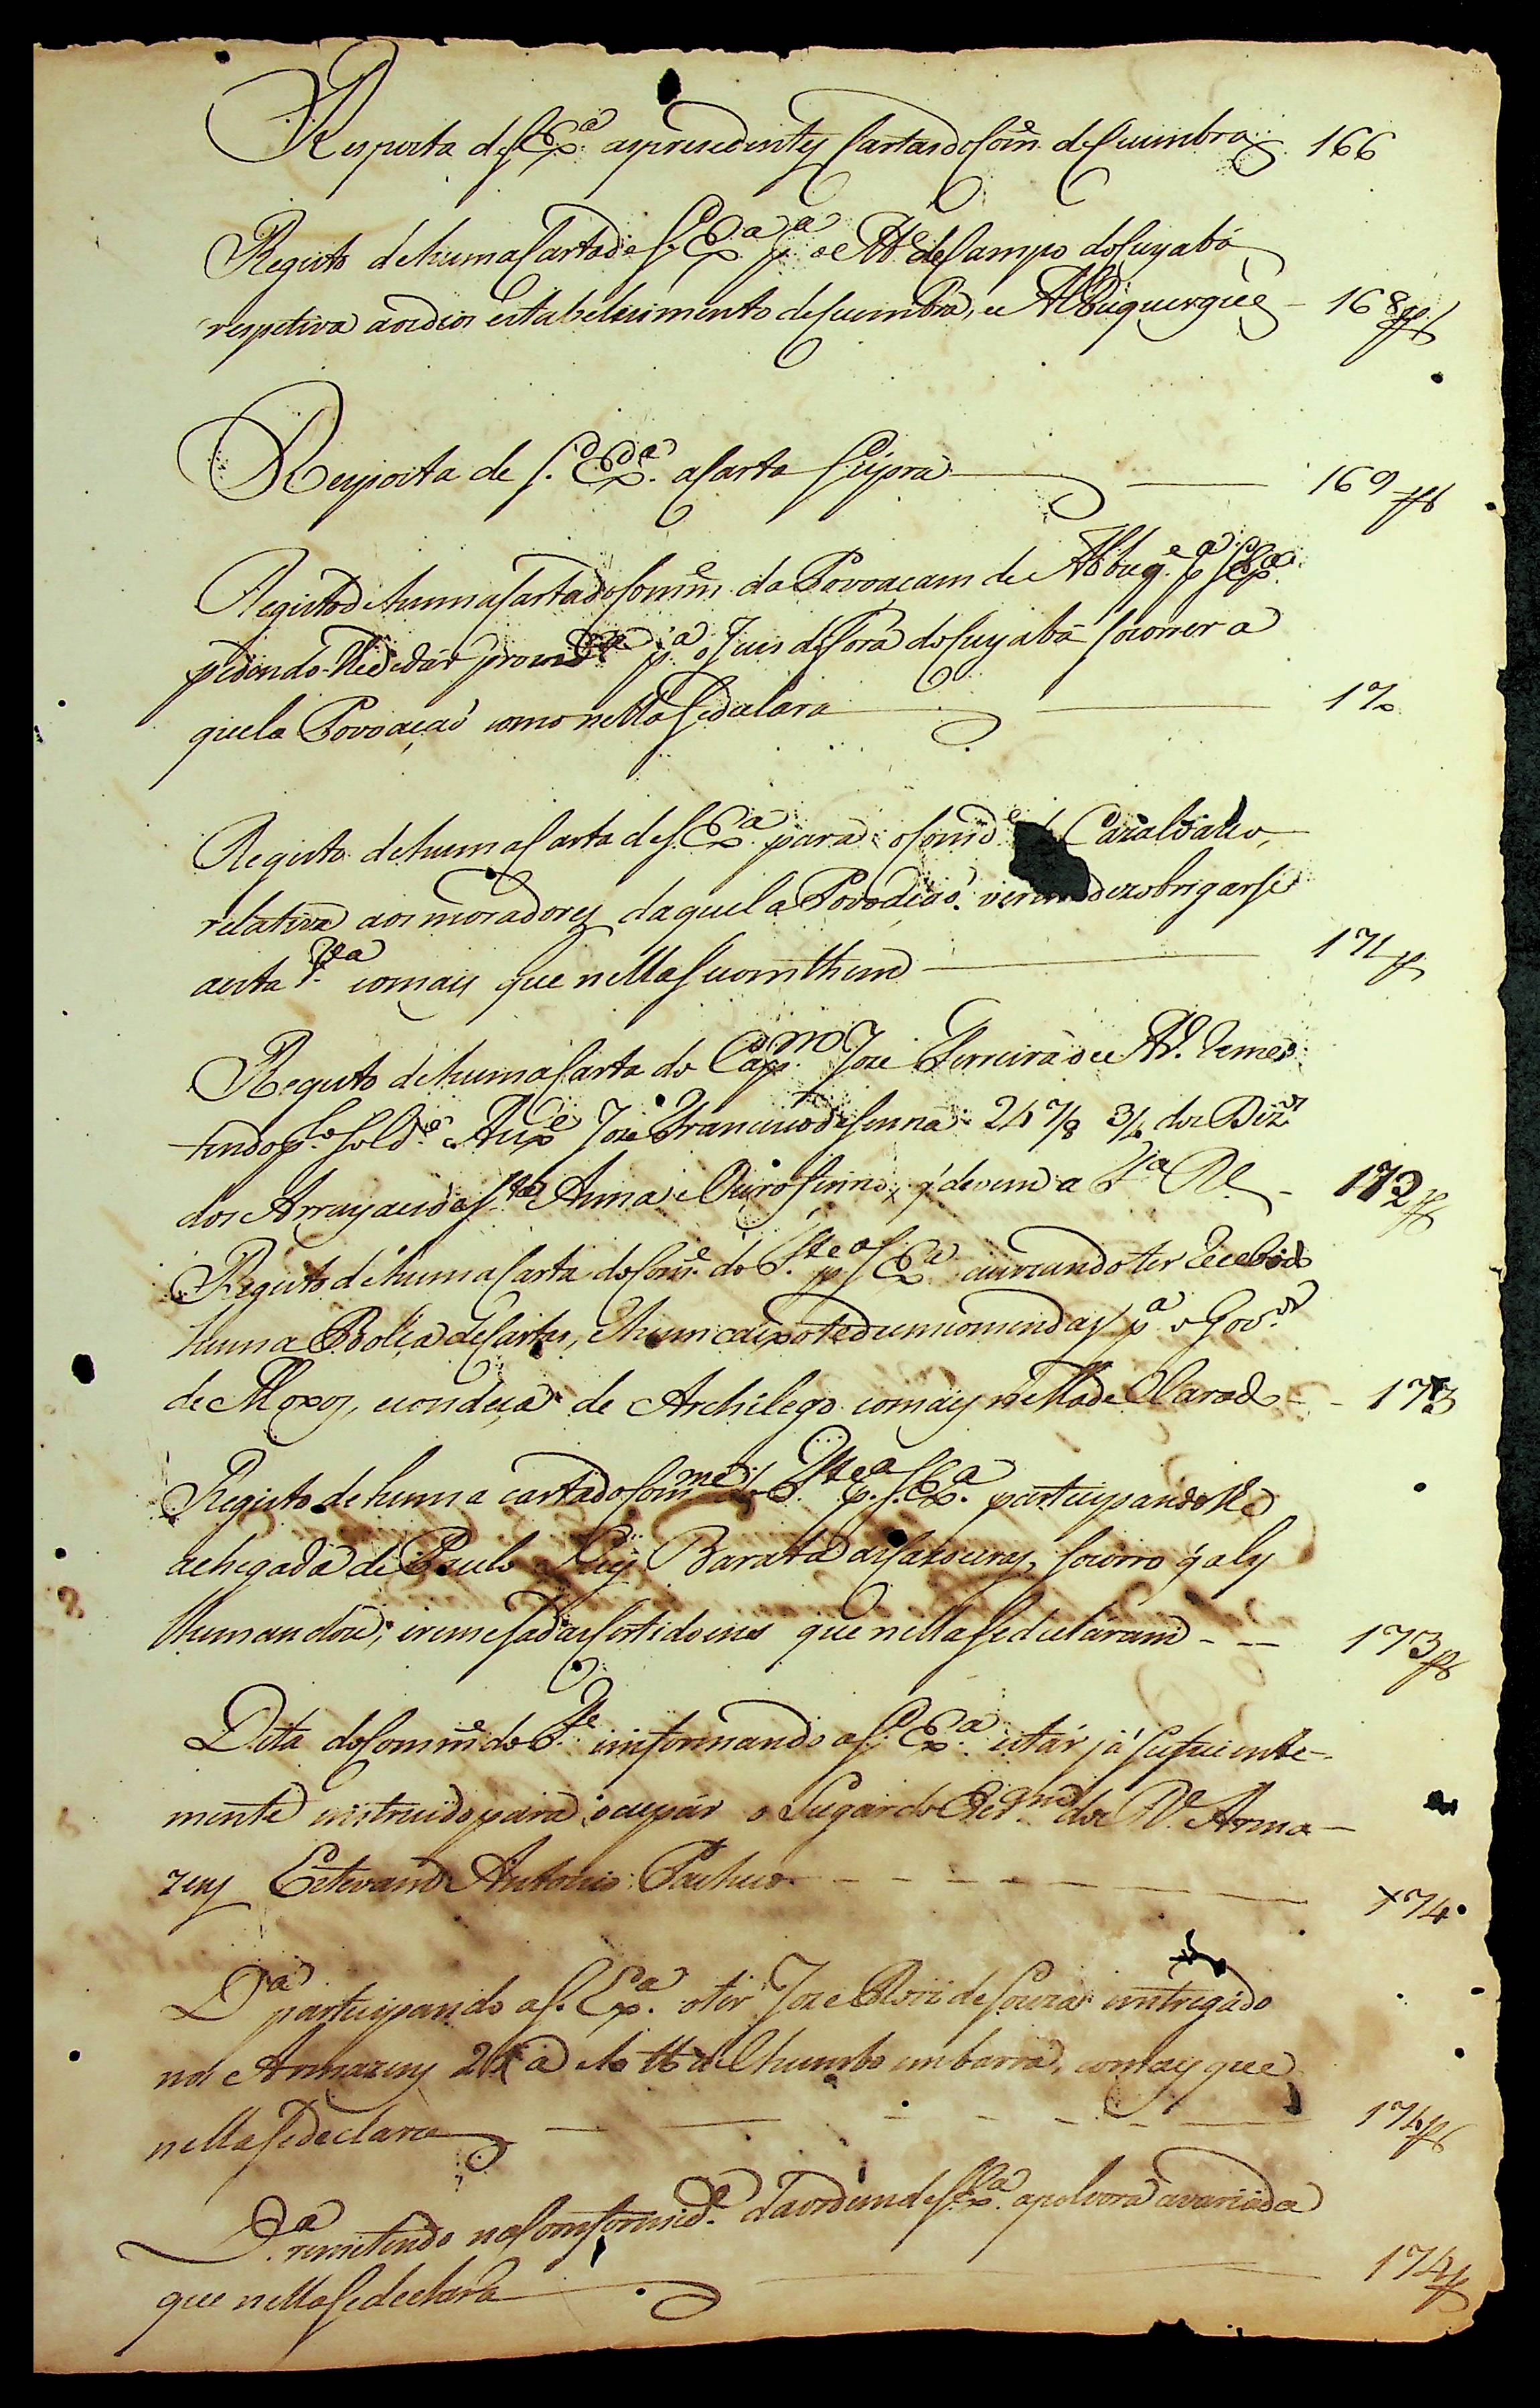 Resposta de S. Exª. as presedentes Cartas do Comᵉ. de Cuimbra 166
Registo de huma Carta de S. Exª. pª. o Mᵉ. de Campo do Cuyabá
respetiva aos dios estabelesimento de Cuimbra, e Albuquerques - 168
Resposta de S. Exª. a Carta Supra 169
Registo de huma Carta do Comᵉ. da Povoaçam de Albuqᵉ. pª S. Exª.
pedindo-lhe dár provid.ª pª. o Juis de Fora do Cuyabá socorrer a
quela Povoaçaõ como nella se dclara 170
Registo de huma Carta de S. Exª. para o Comdᵉ Cazalvasco,
relativa aos moradores daquela Povoaçaõ. virem dezobrigarse
aesta comais que nella se comthem 171
Registo de huma Carta do Capᵐ. Joze Ferreira o e Al. Reme-
tendo pᵒ. Soldᵒ. Auxᵉ Joze Francisco de Senna 24 7/8 3/4 dos Dizᵒˢ
dos Arrayaes de Stª Anna e Ouro finno, q' devem a Fª Rˡ - 172
Registo de huma Carta do Comᵉ. do Fᵗᵉ pª S. Exª. acuzando ter Recebido
huma Bolça de Cartas, e hum caixote de encomendas pª. o Govᵒʳ
de Moxos, econdeça de Archilego comais nella declarado - - 173
Registo de huma carta do Comᵐᵉ do Fᵗᵉ pª. S. Exª. participandolhe
achegada de Paulo Luis Barata as Caxoeiras, socorro q' aly
lhe mandou; eremesa das Certidoens que nella se declaram - - 173
Dita do Commᵉ do Fᵗᵉ. imformando a S. Exª. estár já suficiente-
mente instruido para ocupár o Lugar de Esᵐ. dos Rˢ. Arma-
zens Estevam Antonio Pacheco - - - - 174
Dª participando a S. Exª. o ter Joze Roiz de Souza emtregado
nos Armazens 2 @ de Chumbo em barra, comais que
nella se declara 174
Dª. remetendo na Comformidᵉ. da ordem de S. Exª. apolvora avariada
que nella se declara 174